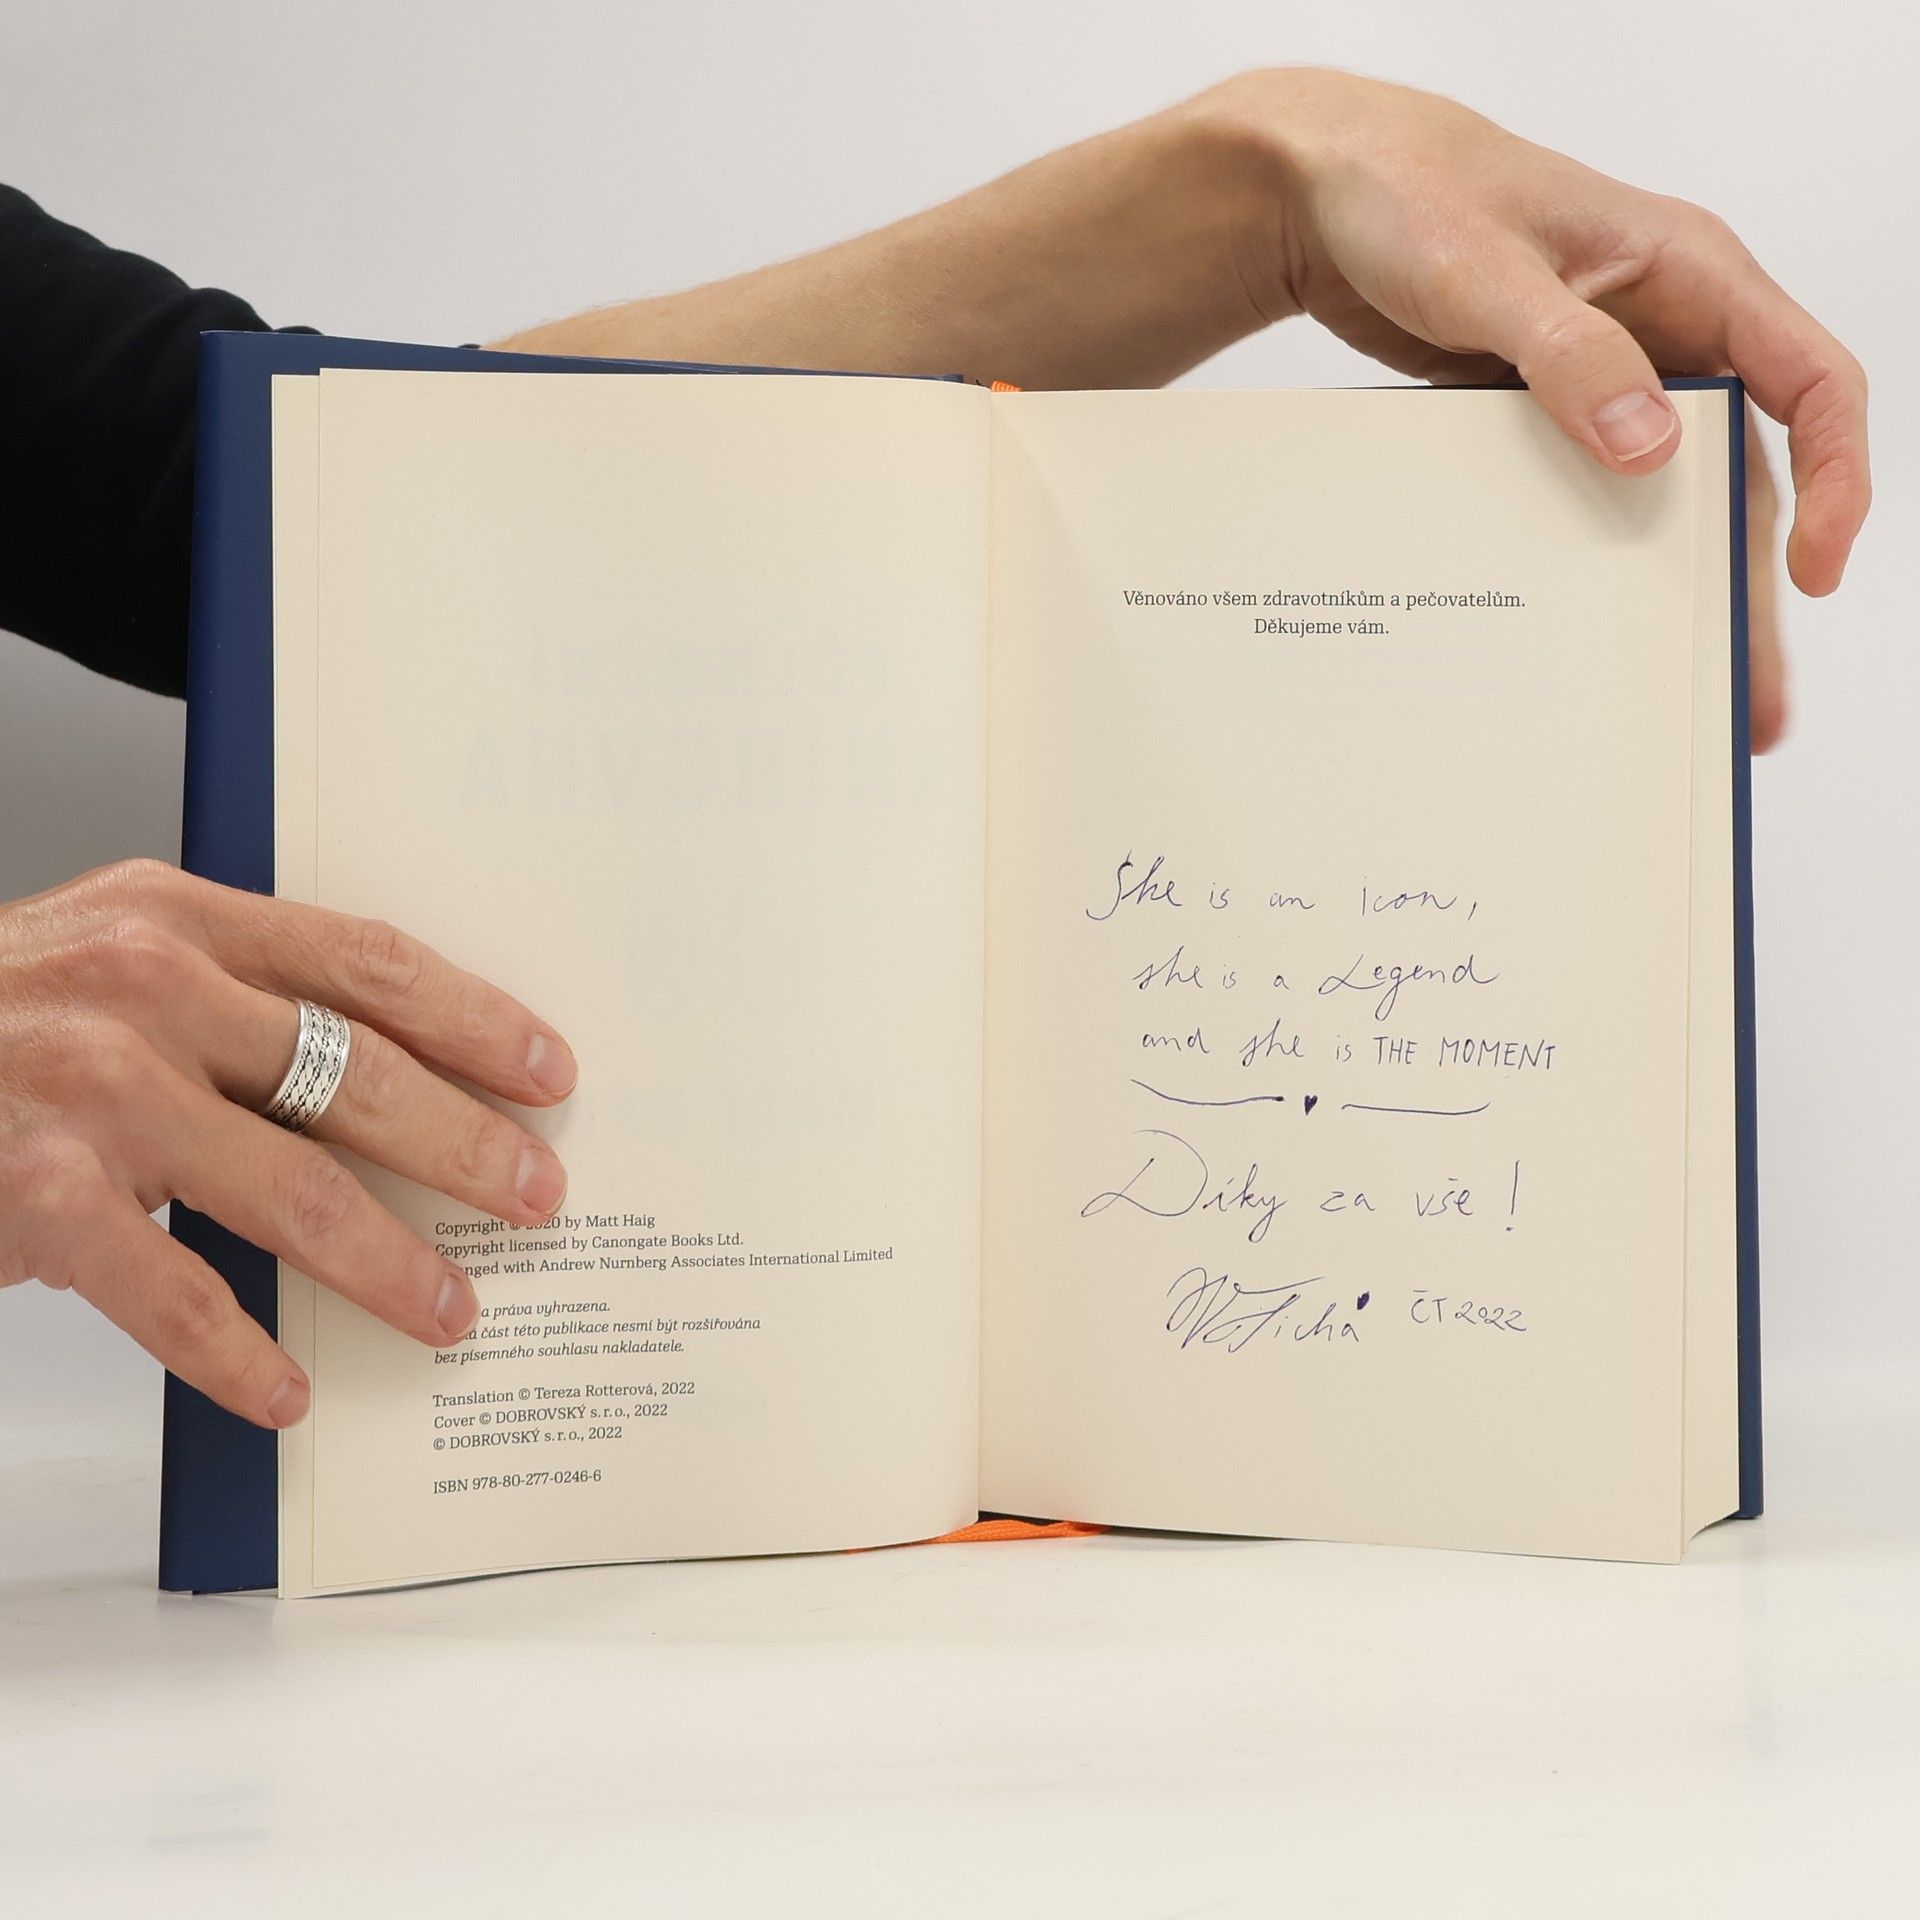 Copyright © 2020 by Matt Haig
Copyright licensed by Canongate Books Ltd.
with Andrew Nurnberg Associates International Limited
a práva vyhrazena.
část této publikace nesmí být rozšiřována
bez písemného souhlasu nakladatele.
Translation © Tereza Rotterová, 2022
Cover © DOBROVSKÝ s.r.o., 2022
© DOBROVSKÝ s.r.o., 2022
ISBN 978-80-277-0246-6
Věnováno všem zdravotníkům a pečovatelům.
Děkujeme vám.
She is an icon,
she is a Legend
and she is THE MOMENT
Díky za vše!
ČT 2022